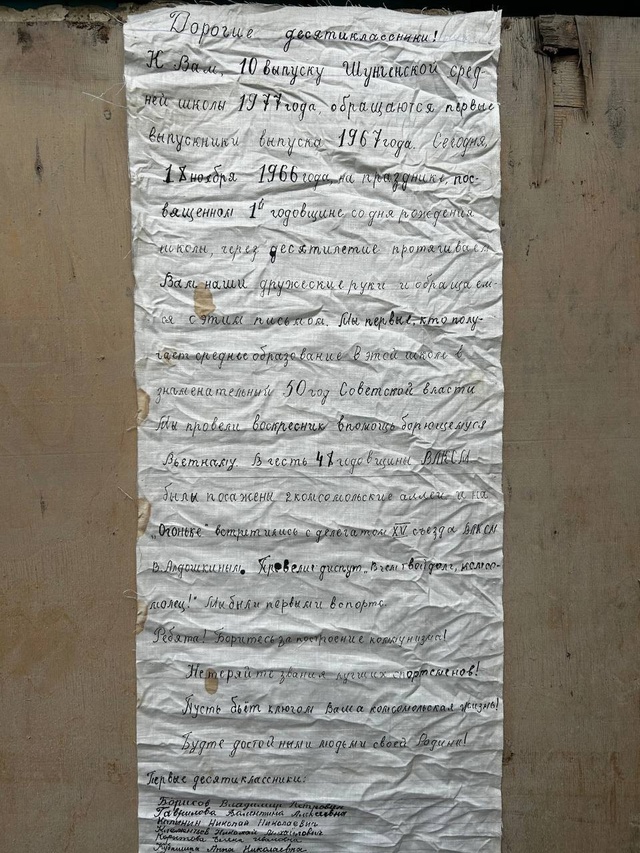 Дорогие десятиклассники!
К Вам, 10 выпуску Шунгенской сред-
ней школы 1977 года, обращаются первые
выпускники выпуска 1967 года. Сегодня,
18 ноября 1966 года, на празднике, пос-
вященном 1й годовщине со дня рождения
школы, через десятилетие протягиваем
Вам наши дружеские руки и обращаем-
ся с этим письмом. Мы первые, кто полу-
чает среднее образование в этой школе в
знаменательный 50 год Советской власти
Мы провели воскресник в помощь борющемуся
Вьетнаму. В честь 48 годовщины ВЛКСМ
были посажены 2 комсомольские аллеи и на
„Огоньке" встретились с делегатом XV съезда ВЛКСМ
В. Алдошкиным. Провели диспут „В чем твой долг, комсо-
молец!" Мы были первыми в спорте
Ребята! Боритесь за построение коммунизма!
Не теряйте звания лучших спортсменов!
Пусть бьёт ключом Ваша комсомольская жизнь!
Будте достойными людьми своей Родины!
Первые десятиклассники:
Борисов Владимир Петрович
Гаврилова Валентина Алексеевна
Калинин Николай Николаевич
Николай Михайлович
Ивановна
Анна Николаевна